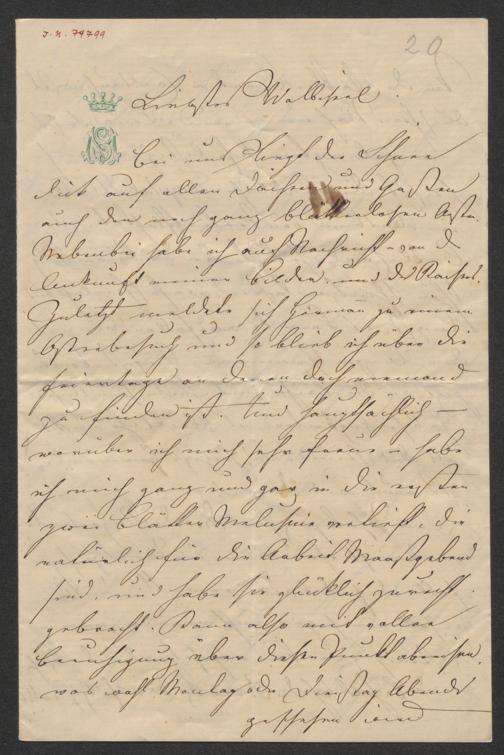 J. N. 74799
29
Liebster Wallishel.
Bei uns liegt der Schnee
dick auf allen Dächern und Gassen
auch den noch ganz blätterlosen Aesten.
Nebenbei habe ich auch Nachricht von d.
Ankunft meiner Bilder und des Kaisers.
Zuletzt meldete sich Herman zu einem
Osterbesuch und so blieb ich über die
Feiertage an denen doch niemand
zu finden ist. Und hauptsächlich –
worüber ich mich sehr freue – habe
ich mich ganz und gar in die ersten
zwei Blätter Melusine vertieft, die
natürlich für die Arbeit Maassgebend
sind, und habe sie glücklich zurecht
gebracht. Kann also mit voller
Beruhigung über diesen Punkt abreisen,
was wohl Montag oder Dienstag Abends
geschehen wird